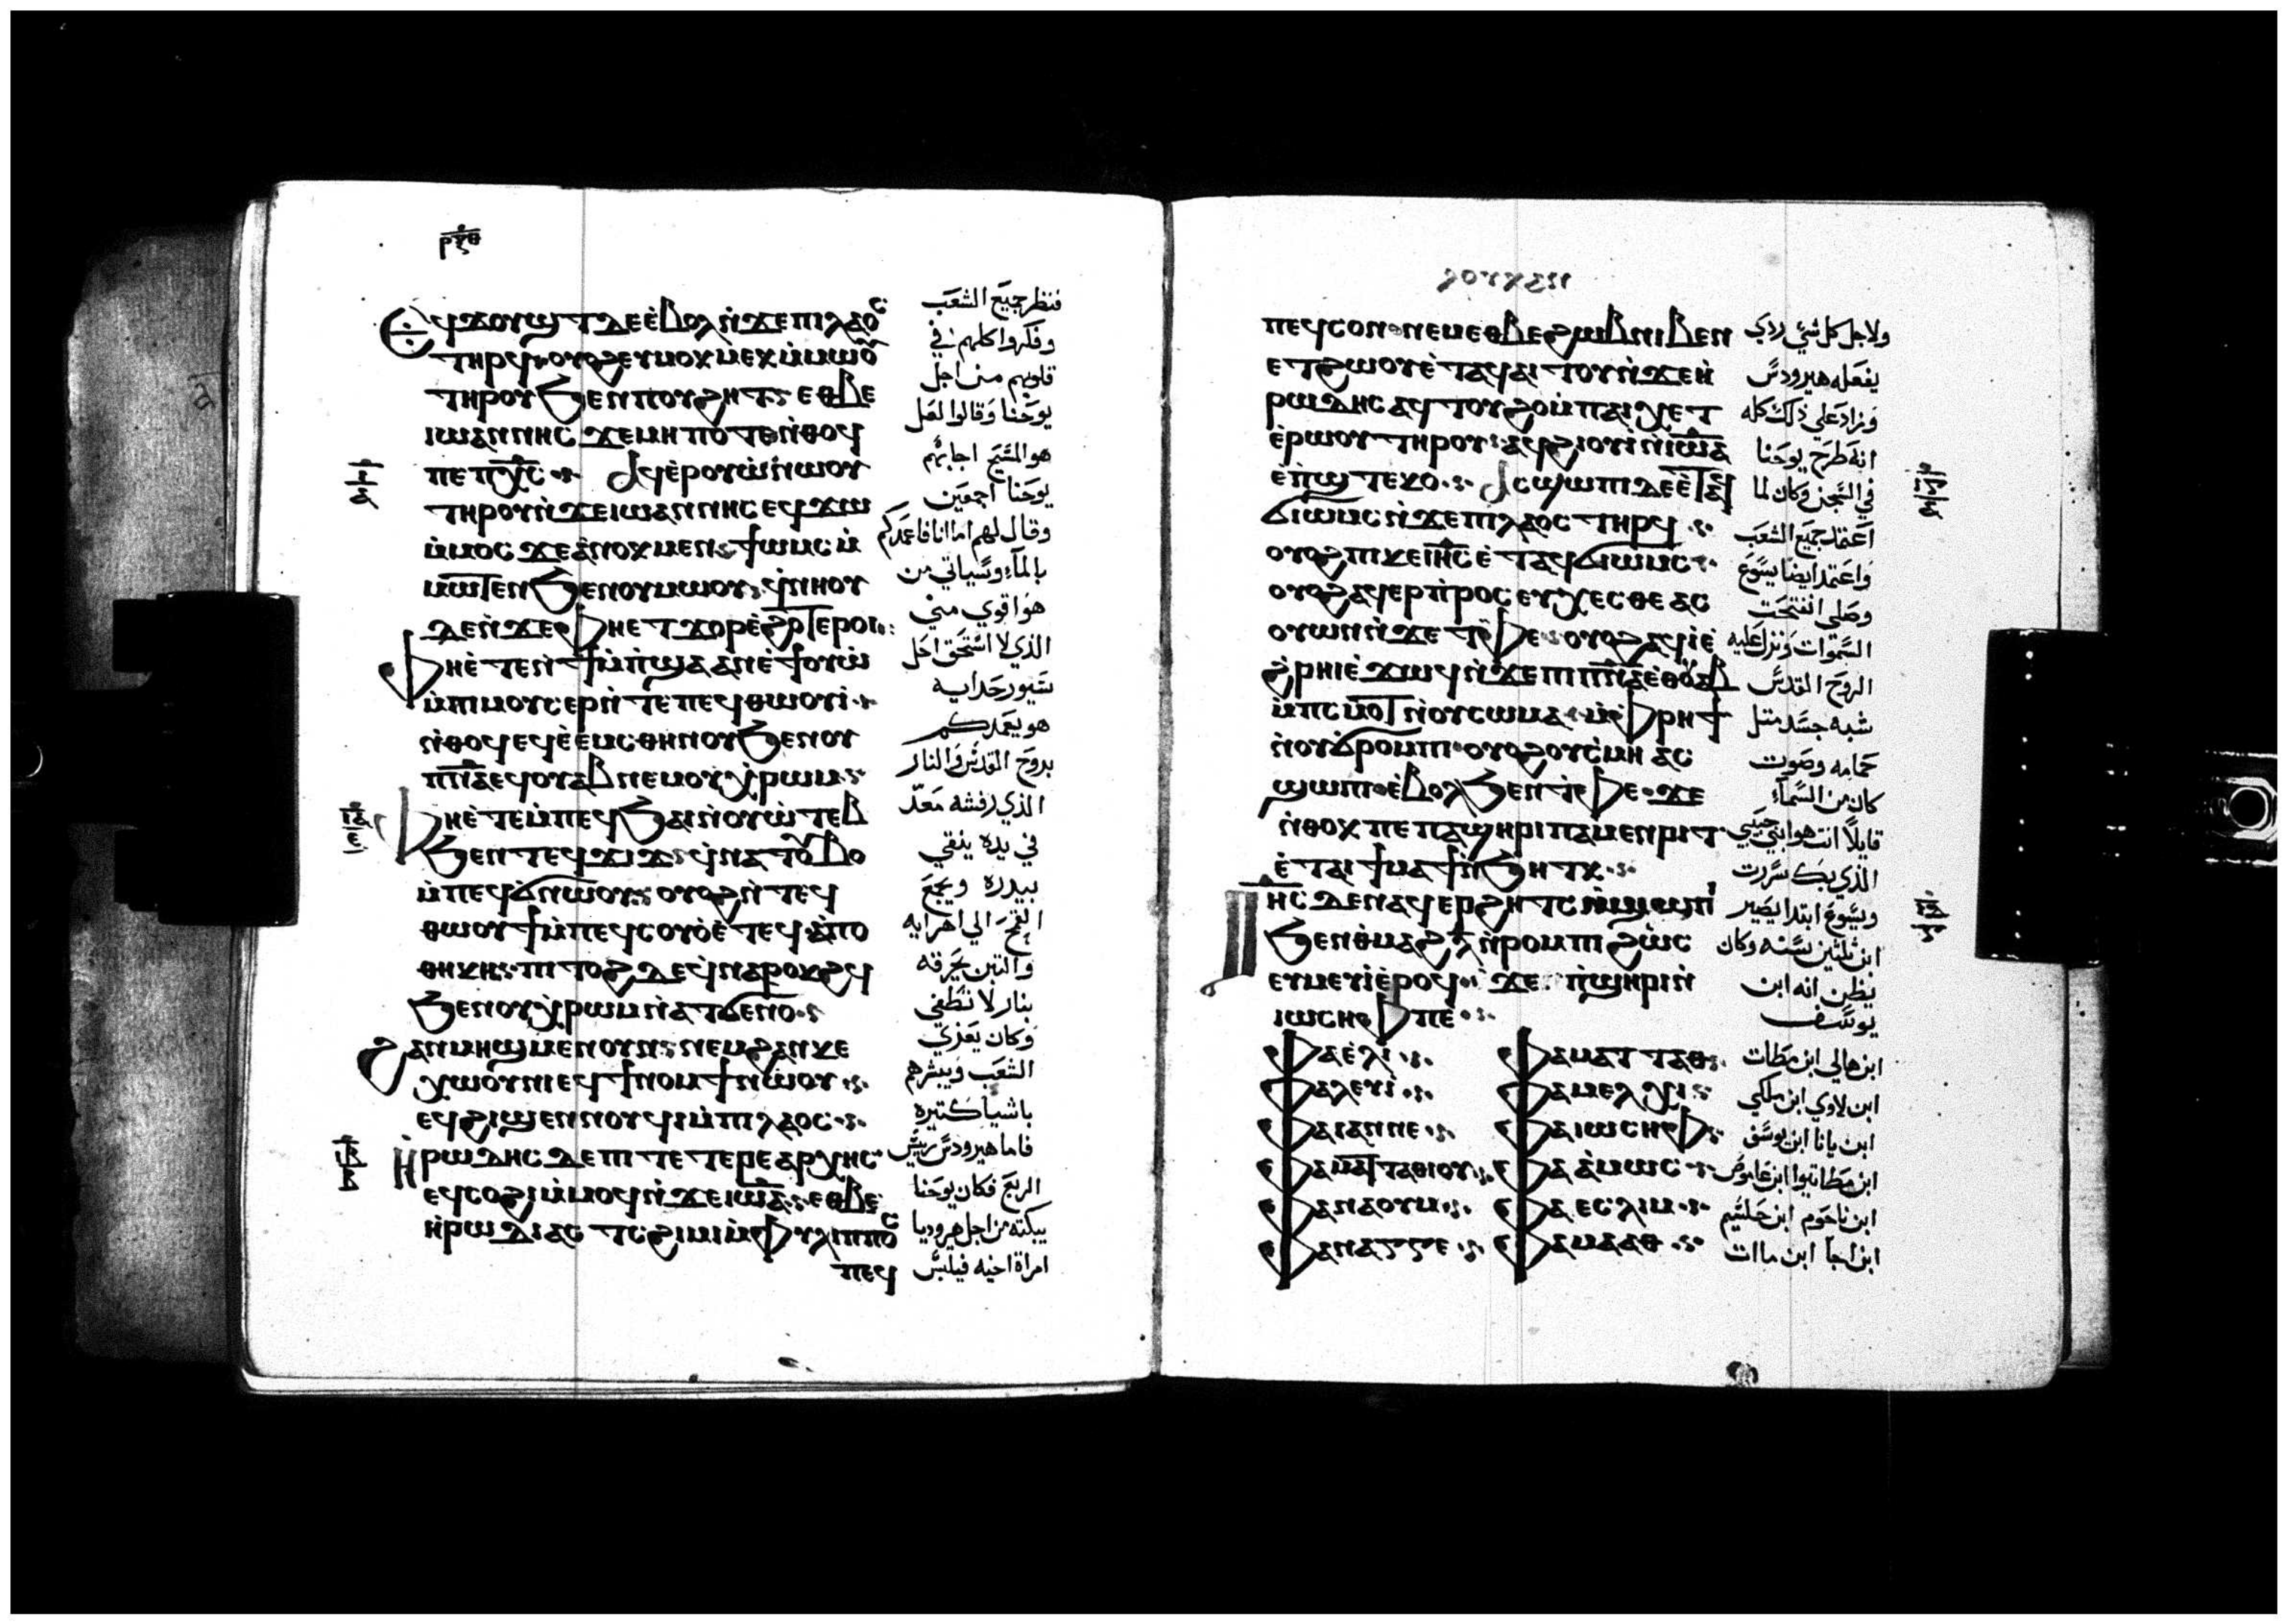 ⲣⲝⲑ
ⲉϥϫⲟⲩϣⲧ ⲇⲉ ⲉ̀ⲃⲟⲗ ⲛ̀ϫⲉ ⲡⲓⲗⲁⲟⲥ
ⲧⲏⲣϥ ⲟⲩⲟϩ ⲉⲩⲙⲟⲕⲙⲉⲕ ⲙ̀ⲙⲱⲟⲩ
ⲧⲏⲣⲟⲩ ϧⲉⲛ ⲡⲟⲩϩⲏⲧ ⲉⲑⲃⲉ
ⲓⲱⲁⲛⲛⲏⲥ ϫⲉ ⲙⲏⲡⲟⲧⲉ ⲛ̀ⲑⲟϥ
ⲡⲉ ⲡⲭ̅ⲥ̅ ⲁϥⲉ̀ⲣⲟⲩⲱ̀ ⲛ̀ⲱⲟⲩ
ⲧⲏⲣⲟⲩ ⲛ̀ϫⲉ ⲓⲱⲁⲛⲛⲏⲥ ⲉϥϫⲱ
ⲙ̀ⲙⲟⲥ ϫⲉ ⲁ̀ⲛⲟⲕ ⲙⲉⲛ ϯⲱⲙⲥ ⲙ̀
ⲙⲱⲧⲉⲛ ϧⲉⲛ ⲟⲩⲙⲱⲟⲩ ϥ̀ⲛⲏⲟⲩ
ⲇⲉ ⲛ̀ϫⲉ ⲫⲏⲉⲧϫⲟⲣ ⲉ̀ϩⲟⲧⲉⲣⲟⲓ
ⲫⲏⲉ̀ⲧⲉⲛ̀ϯⲙ̀ⲡϣⲁ ⲁⲛ ⲉ̀ϯⲟⲩⲱ̀
ⲙ̀ⲡⲓⲙⲟⲩⲥⲉⲣ ⲛ̀ⲧⲉ ⲡⲉϥⲑⲱⲟⲩⲓ̀
ⲛ̀ⲑⲟϥ ⲉϥⲉ̀ⲉⲙⲥⲑⲏⲛⲟⲩ ϧⲉⲛ ⲟⲩ
ⲡ̅ⲛ̅ⲁ̅ ⲉϥⲟⲩⲁⲃ ⲛⲉⲙ ⲟⲩⲭ̀ⲣⲱⲙ
ⲫⲏⲉ̀ⲧⲉ ⲙ̀ⲡⲉϥϧⲁⲓ ⲛ̀ⲟⲩⲱ̀ⲧⲉⲃ
ϧⲉⲛ ⲧⲉϥϫⲓϫ ϥ̀ⲛⲁⲧⲟⲩⲃⲟ
ⲙ̀ⲡⲉϥϭⲛⲱⲟⲩ ⲟⲩⲟϩ ⲛ̀ⲧⲉϥ
ⲑⲱⲟⲩϯ ⲙ̀ⲡⲉϥⲥⲟⲩⲟ ⲉ̀ⲧⲉϥⲁ̀ⲡⲟ
ⲑⲏⲕⲏ ⲡⲓⲧⲟϩ ⲇⲉ ϥ̀ⲛⲁⲣⲟⲕϩϥ
ϧⲉⲛ ⲟⲩⲭ̀ⲣⲱⲙ ⲛ̀ⲁⲧϭⲉⲛⲟ
ϩⲁⲛⲙⲏϣ ⲙⲉⲛ ⲟⲩⲛ ⲛⲉⲙ ϩⲁⲛⲕⲉ
ⲭⲱⲟⲩⲛⲓ ⲉϥϯⲛⲟⲙϯ ⲛⲱⲟⲩ
ⲉϥϩⲓϣⲉⲛⲛⲟⲩϥⲓ ⲙ̀ⲡⲓⲗⲁⲟⲥ
ⲏ̀ⲣⲱⲇⲏⲥ ⲇⲉ ⲡⲓⲧⲉⲧⲉⲣⲉⲁⲣⲭⲏⲥ
ⲉϥⲥⲟϩⲓ ⲙ̀ⲙⲟϥ ⲛ̀ϫⲉ ⲓⲱ̅ⲁ̅ ⲉⲑⲃⲉ
ⲏ̀ⲣⲱⲇⲓⲁⲥ ⲧⲥϩⲓⲙⲓ ⲙ̀ⲫⲩⲗⲓⲡⲡⲟⲥ
ⲡⲉϥ
فنظر جميع الشعب
وفكروا كلهم في
قلوبهم من اجل
يوحنا وقالوا لعل
هو المسيح اجابهم
يوحنا اجمعين
وقال لهم اما انا فاعمدكم
بالماء وسياتي من
هو اقوي مني
الذي لا استحق احل
سيور حدايه
هو يعمدكم
بروح القدس والنار
الذي رفشه معد
في يده ينقي
بيدره ويجمع
القمح الي اهرايه
والتبن يحرقه
بنار لا تطفي
وكان يعزي
الشعب ويبشرهم
باشيا كتيره
فاما هيرودس رييس
الربع فكان يوحنا
يبكته من اجل هيروديا
امراة اخيه فيلبس
ⲡⲉϥⲥⲟⲛ ⲛⲉⲙ ⲉⲑⲃⲉ ϩⲱⲃ ⲛⲓⲃⲉⲛ
ⲉⲧϩⲱⲟⲩ ⲉ̀ⲧⲁϥⲁⲓⲧⲟⲩ ⲛ̀ϫⲉ ⲏ̀
ⲣⲱⲇⲏⲥ ⲁϥⲧⲟⲩϩⲟ ⲙ̀ⲡⲁⲓⲭⲉⲧ
ⲉ̀ⲣⲱⲟⲩ ⲧⲏⲣⲟⲩ ⲁϥϩⲓⲟⲩⲓ̀ ⲛ̀ⲓⲱ̅ⲁ̅
ⲉ̀ⲡϣⲧⲉⲕⲟ ⲁⲥϣⲱⲡⲓ ⲇⲉ ⲉ̀ⲧⲁϥ
ϭⲓⲱⲙⲥ ⲛ̀ϫⲉ ⲡⲓⲗⲁⲟⲥ ⲧⲏⲣϥ
ⲟⲩⲟϩ ⲡⲓⲕⲉ ⲓⲏ̅ⲥ̅ ⲉ̀ⲧⲁϥϭⲓⲱⲙⲥ
ⲟⲩⲟϩ ⲁϥⲉⲣⲡ̀ⲣⲟⲥⲉⲩⲭⲉⲥⲑⲉ ⲁⲥ
ⲟⲩⲱⲛ ⲛ̀ϫⲉ ⲧ̀ⲫⲉ ⲟⲩⲟϩ ⲁϥⲓ̀ ⲉ̀
ϩ̀ⲣⲏⲓ ⲉ̀ϫⲱϥ ⲛ̀ϫⲉ ⲡⲓⲡ̅ⲛ̅ⲁ̅ ⲉ̀ⲑⲟⲩⲁⲃ
ⲙ̀ⲡⲥⲙⲟⲧ ⲛ̀ⲟⲩⲥⲱⲙⲁ ⲙ̀ⲫ̀ⲣⲏϯ
ⲛ̀ⲟⲩϭⲣⲟⲙⲡⲓ ⲟⲩⲟϩ ⲟⲩⲥ̀ⲙⲏ ⲁⲥ
ϣⲱⲡⲓ ⲉ̀ⲃⲟⲗ ϧⲉⲛ ⲧ̀ⲫⲉ ϫⲉ
ⲛ̀ⲑⲟⲕ ⲡⲉ ⲡⲁϣⲏⲣⲓ ⲡⲁⲙⲉⲛⲣⲓⲧ
ⲉ̀ⲧⲁⲓϯⲙⲁϯ ⲛ̀ϧⲏⲧⲕ
ⲓⲏ̅ⲥ̅ ⲇⲉ ⲛⲁϥⲉⲣϩⲏⲧⲥ ⲛ̀ϣⲱⲡⲓ
ϧⲉⲛ ⲑⲙⲁϩ ⲗ̅ ⲛ̀ⲣⲟⲙⲡⲓ ϩⲱⲥ
ⲉⲩⲙⲉⲩⲓ̀ ⲉ̀ⲣⲟϥ ϫⲉ ⲡ̀ϣⲏⲣⲓ ⲛ̀
ⲓⲱⲥⲏⲫ ⲡⲉ
ⲫⲁ ⲉ̀ⲗⲓ ⲫⲁ ⲙⲁⲧⲧⲁⲑ
ⲫⲁ ⲗⲉⲩⲓ̀ ⲫⲁ ⲙⲉⲗⲭⲓ
ⲫⲁ ⲓⲁⲛⲛⲉ ⲫⲁ ⲓⲱⲥⲏⲫ
ⲫⲁ ⲙⲁⲧⲧⲁⲑⲓⲟⲩ ⲫⲁ ⲁ̀ⲙⲱⲥ
ⲫⲁ ⲛⲁⲟⲩⲙ ⲫⲁ ⲉⲥⲗⲓⲙ
ⲫⲁ ⲛⲁⲅⲅⲉ ⲫⲁ ⲙⲁⲁⲑ
ولاجل كل شي ردي
يفعله هيرودس
وزاد علي ذلك كله
انه طرح يوحنا
في السجن وكان لما
اعتمد جميع الشعب
واعتمد ايضا يسوع
وصلي انفتحت
السموات ونزل عليه
الروح القدس
شبه جسد متل
حمامه وصوت
كان من السماء
قايلا انت هو ابني حبيبي
الذي بك سررت
ويسوع ابتدا يصير
ابن ثلثين سنه وكان
يظن انه ابن
يوسف
ابن هالي ابن مطات
ابن لاوي ابن ملكي
ابن يانا ابن يوسف
ابن مطاتيوا ابن عاموص
ابن ناحوم ابن حلسيم
ابن احبا ابن ماات